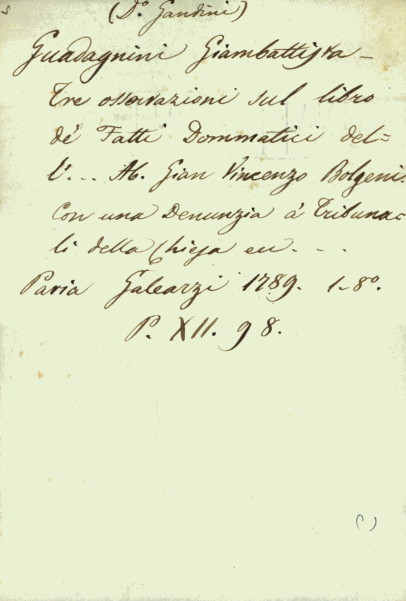 (D.º Gandini)
Guadagnini Giambattista -
Tre osservazioni sul libro
de' Fatti Dommatici del=
l'... Ab. Gian Vincenzo Bolgeni.
Con una Denunzia a' Tribuna=
li della Chiesa
Pavia Galeazzi 1789. 1-8º.
P. XII. 98.
( )